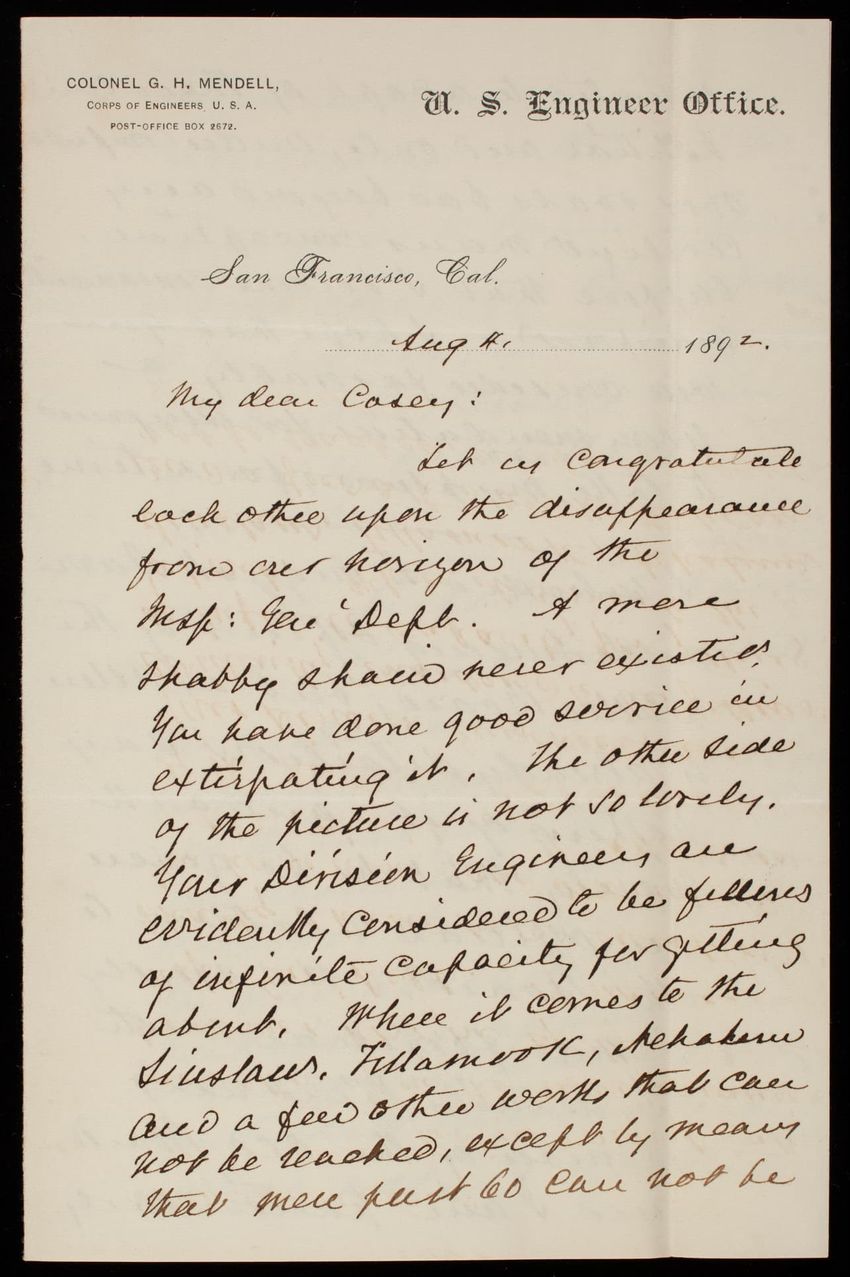 COLONEL G. H. MENDELL,
CORPS OF ENGINEERS, U. S. A.
POST-OFFICE BOX 2672.
U. S. Engineer Office.
San Francisco, Cal.
Aug 4. 1892.
My dear Casey:
Let us congratulate
each other upon the disappearance
from our horizon of the
Insp: Gen' Dept. A more
shabby sham never existed.
You have done good service in
extirpating it. The other side
of the picture is not so lovely.
Your Division Engineers are
evidently considered to be fellows
of infinite capacity for getting
about. When it comes to the
Siuslaw, Tillamook, Nehalem
and a few other works that can
not be reached, except by means
that men past 60 can not be